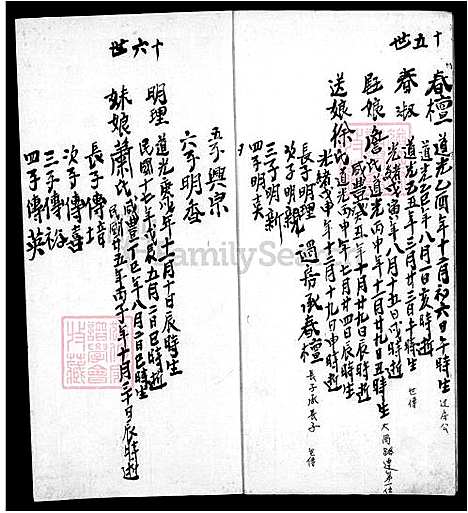 十五世
春檀 道光乙酉年十二月初六日午時生
道光乙巳年八月一日亥時逝
春淑 道光五五年三月廿三日午時生
光緒戊寅年八月十五日戌時逝
氏道光丙申年十一月廿九日丑時生
咸豐戊午年十月廿九日辰時逝
送娘徐氏道光丙申年七月廿四日辰時生
光緒戊申年十二月十九日申時逝
長子明理 過房承春檀
次子明
三子明新
四子明
五子興宗
六子明香
十六世
明理 道光庚戌年十一月十日辰時生
民國十七年戊辰五月二日巳時逝
妹娘蕭氏咸豐丁巳年八月二日巳時生
民國廿五年丙子年十月三十日辰時逝
長子傳培
次子傳壽
三子傳裕
四子傳英
FamilySearch